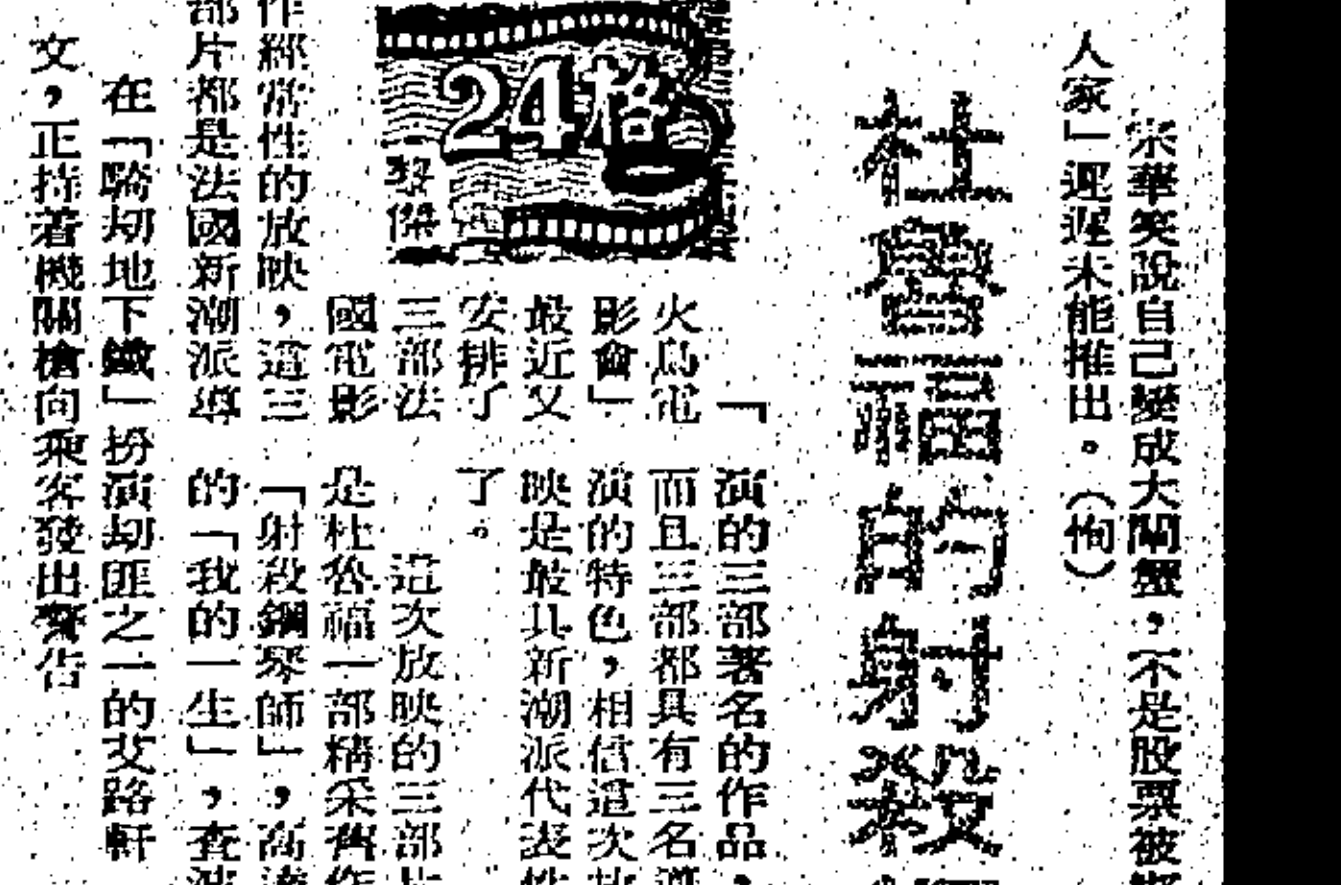 宗華笑說自己變成大閘蟹，不是股票被綁
人家」遲遲未能推出。（恂）
杜魯福的射殺
24格
黎傑
「
火鳥電
影會」
最近又
安排了
三部法
國電影
作經常性的放映，這三
部片都是法國新潮派導
演的三部著名的作品，
而且三部都具有三名導
演的特色，相信這次放
映是最具新潮派代表性
了。
這次放映的三部片
是杜魯福一部精采舊作
「射殺鋼琴師」，高達
的「我的一生」，查波
在「騎刼地下鐵」扮演刼匪之一的艾路軒
文，正持着機關槍向乘客發出警告